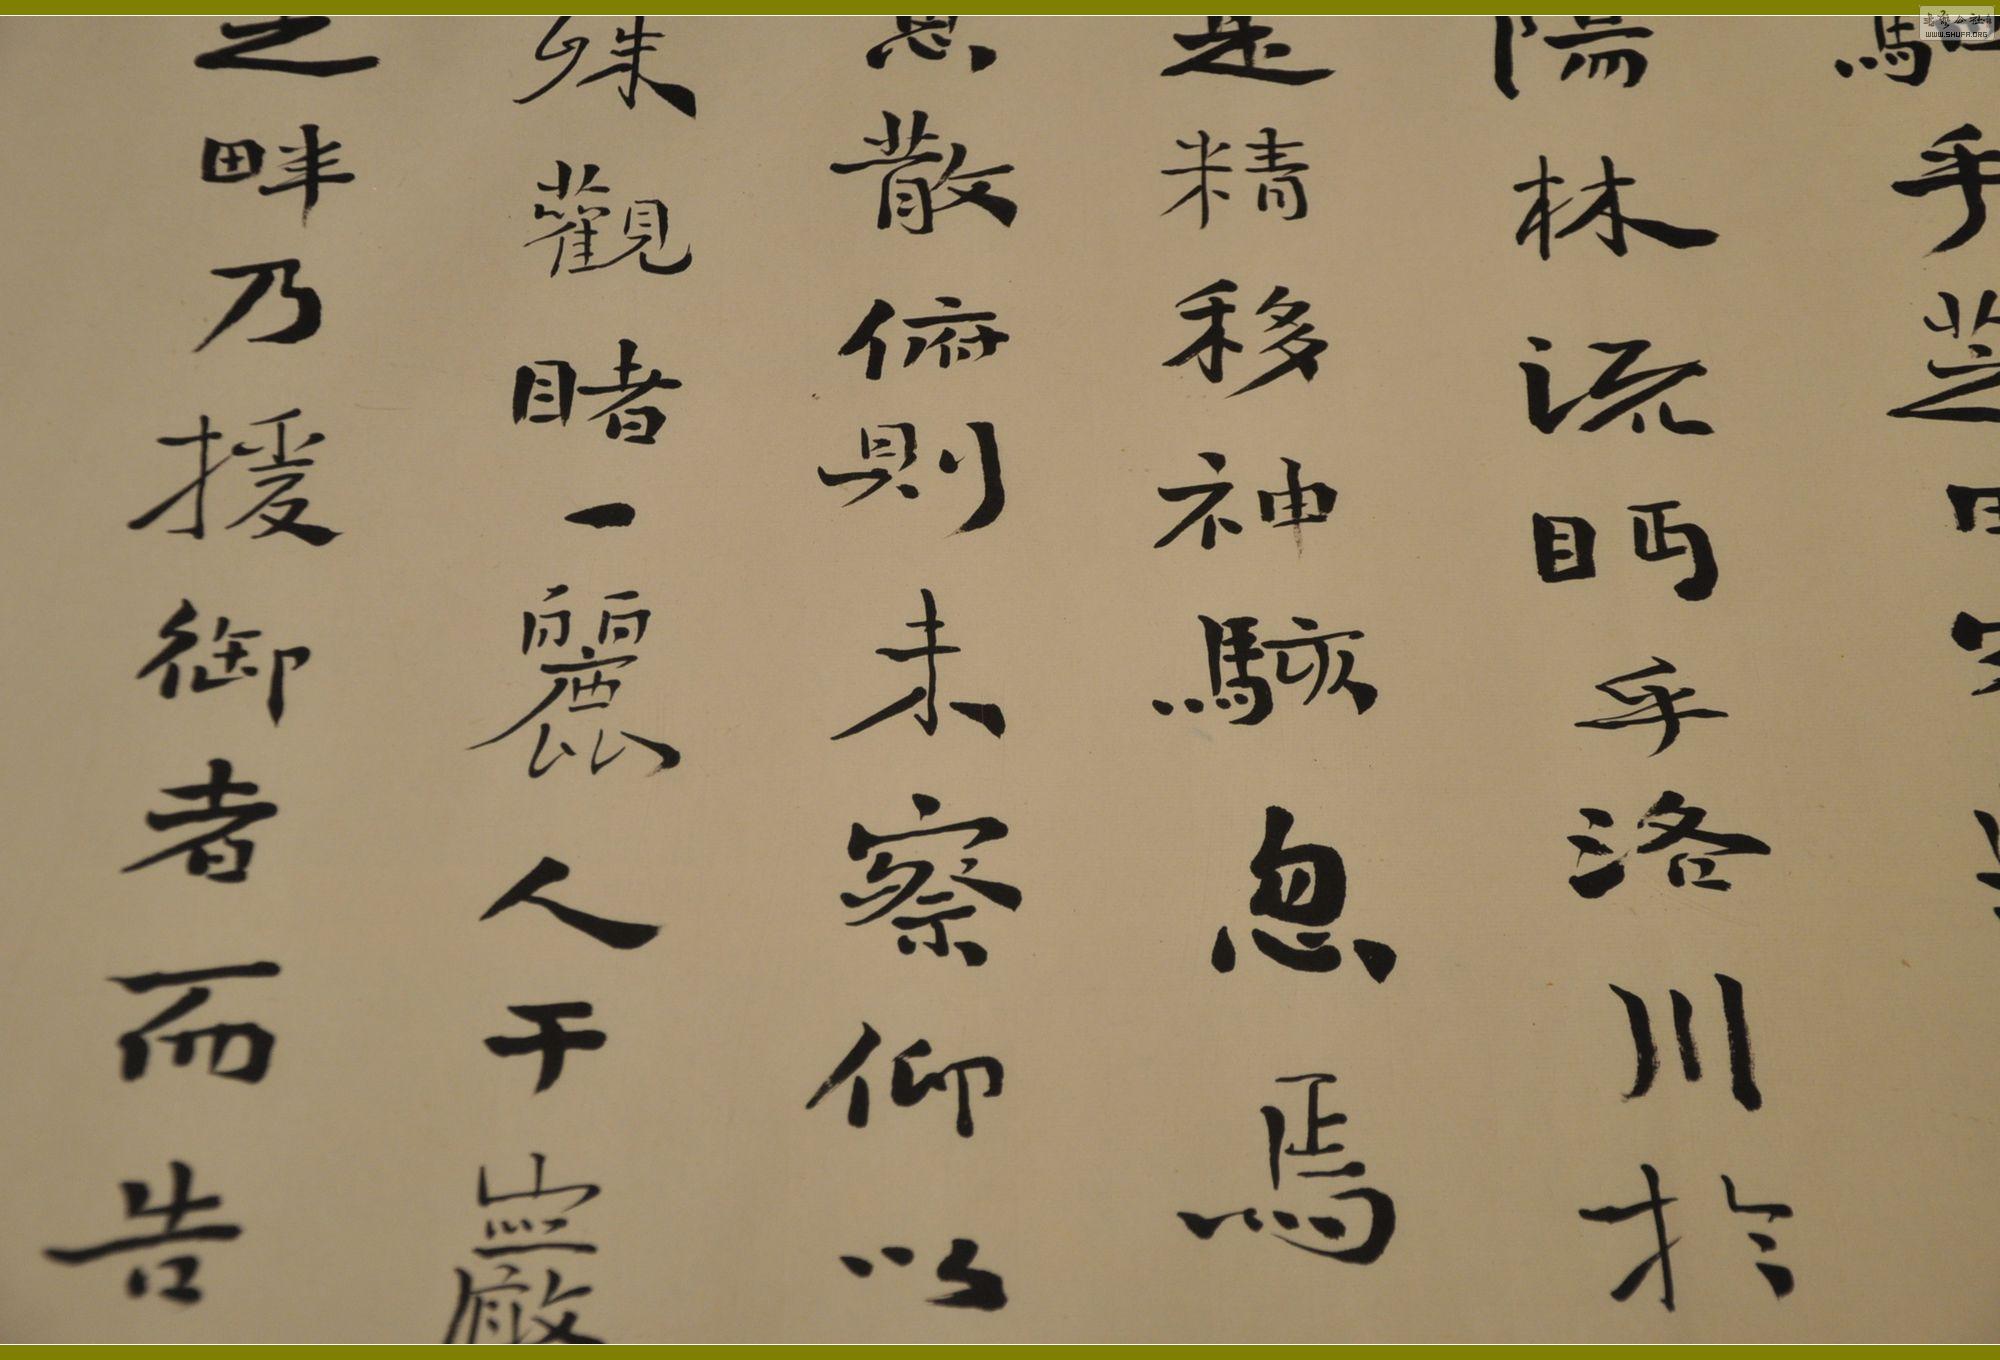 駟乎芝田容與
陽林流眄乎洛川於
是精移神駭忽焉
思散俯則未察仰以
殊觀睹一麗人于巖
之畔乃援御者而告
WWW.SHUFA.ORG